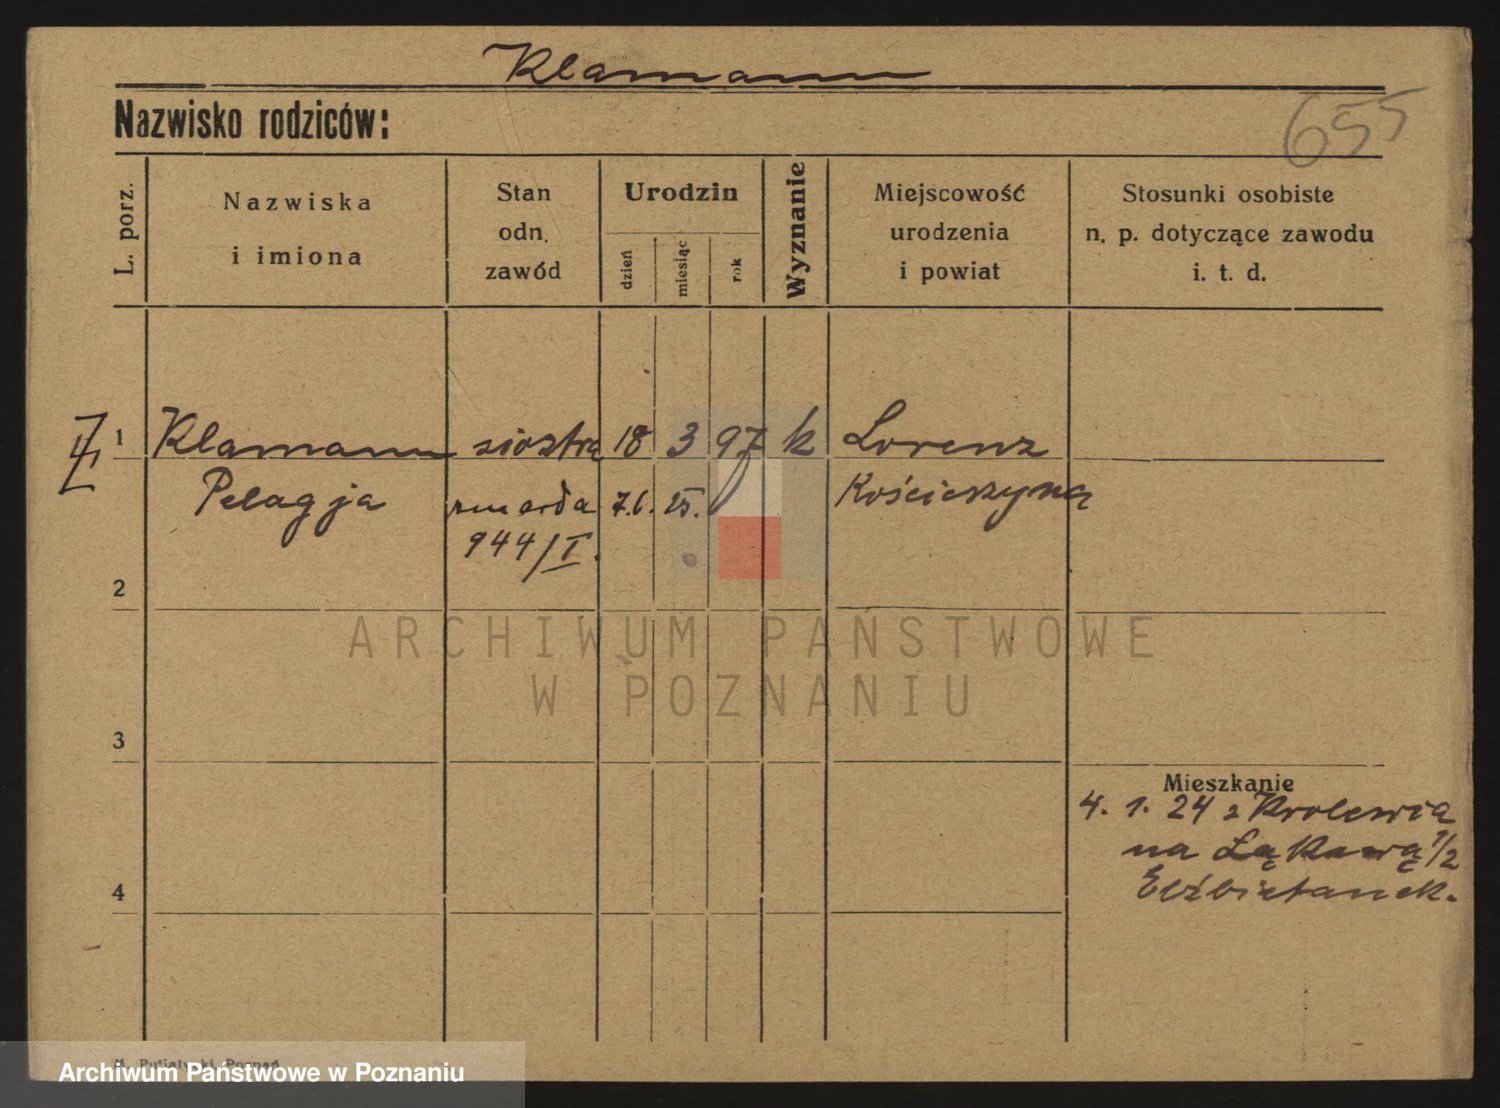 Klamann
Nazwisko rodziców:
655
L. porz.
Nazwiska
i imiona
Stan
odn.
zawód
Urodzin
dzień
miesiąc
rok
Wyznanie
Miejscowość
urodzenia
i powiat
Stosunki osobiste
n. p. dotyczące zawodu
i. t. d.
1 Klamann siostra 18 3 97 k Lorenz
Pelagja zmarła 7.6. 25. Kościerzyna
944/I.
2
ARCHIWUM PAŃSTWOWE
W POZNANIU
3
Mieszkanie
4. 1. 24 z Krolewia
na Łąkową 1/2
4
Elżbietanek.
Poznań
Archiwum Państwowe w Poznaniu